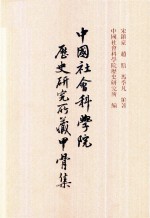 宋鎮豪 趙鵬 馬季凡 編著
中國社會科學院歷史研究所 編
中國社會科學院
歷史研究所藏甲骨集